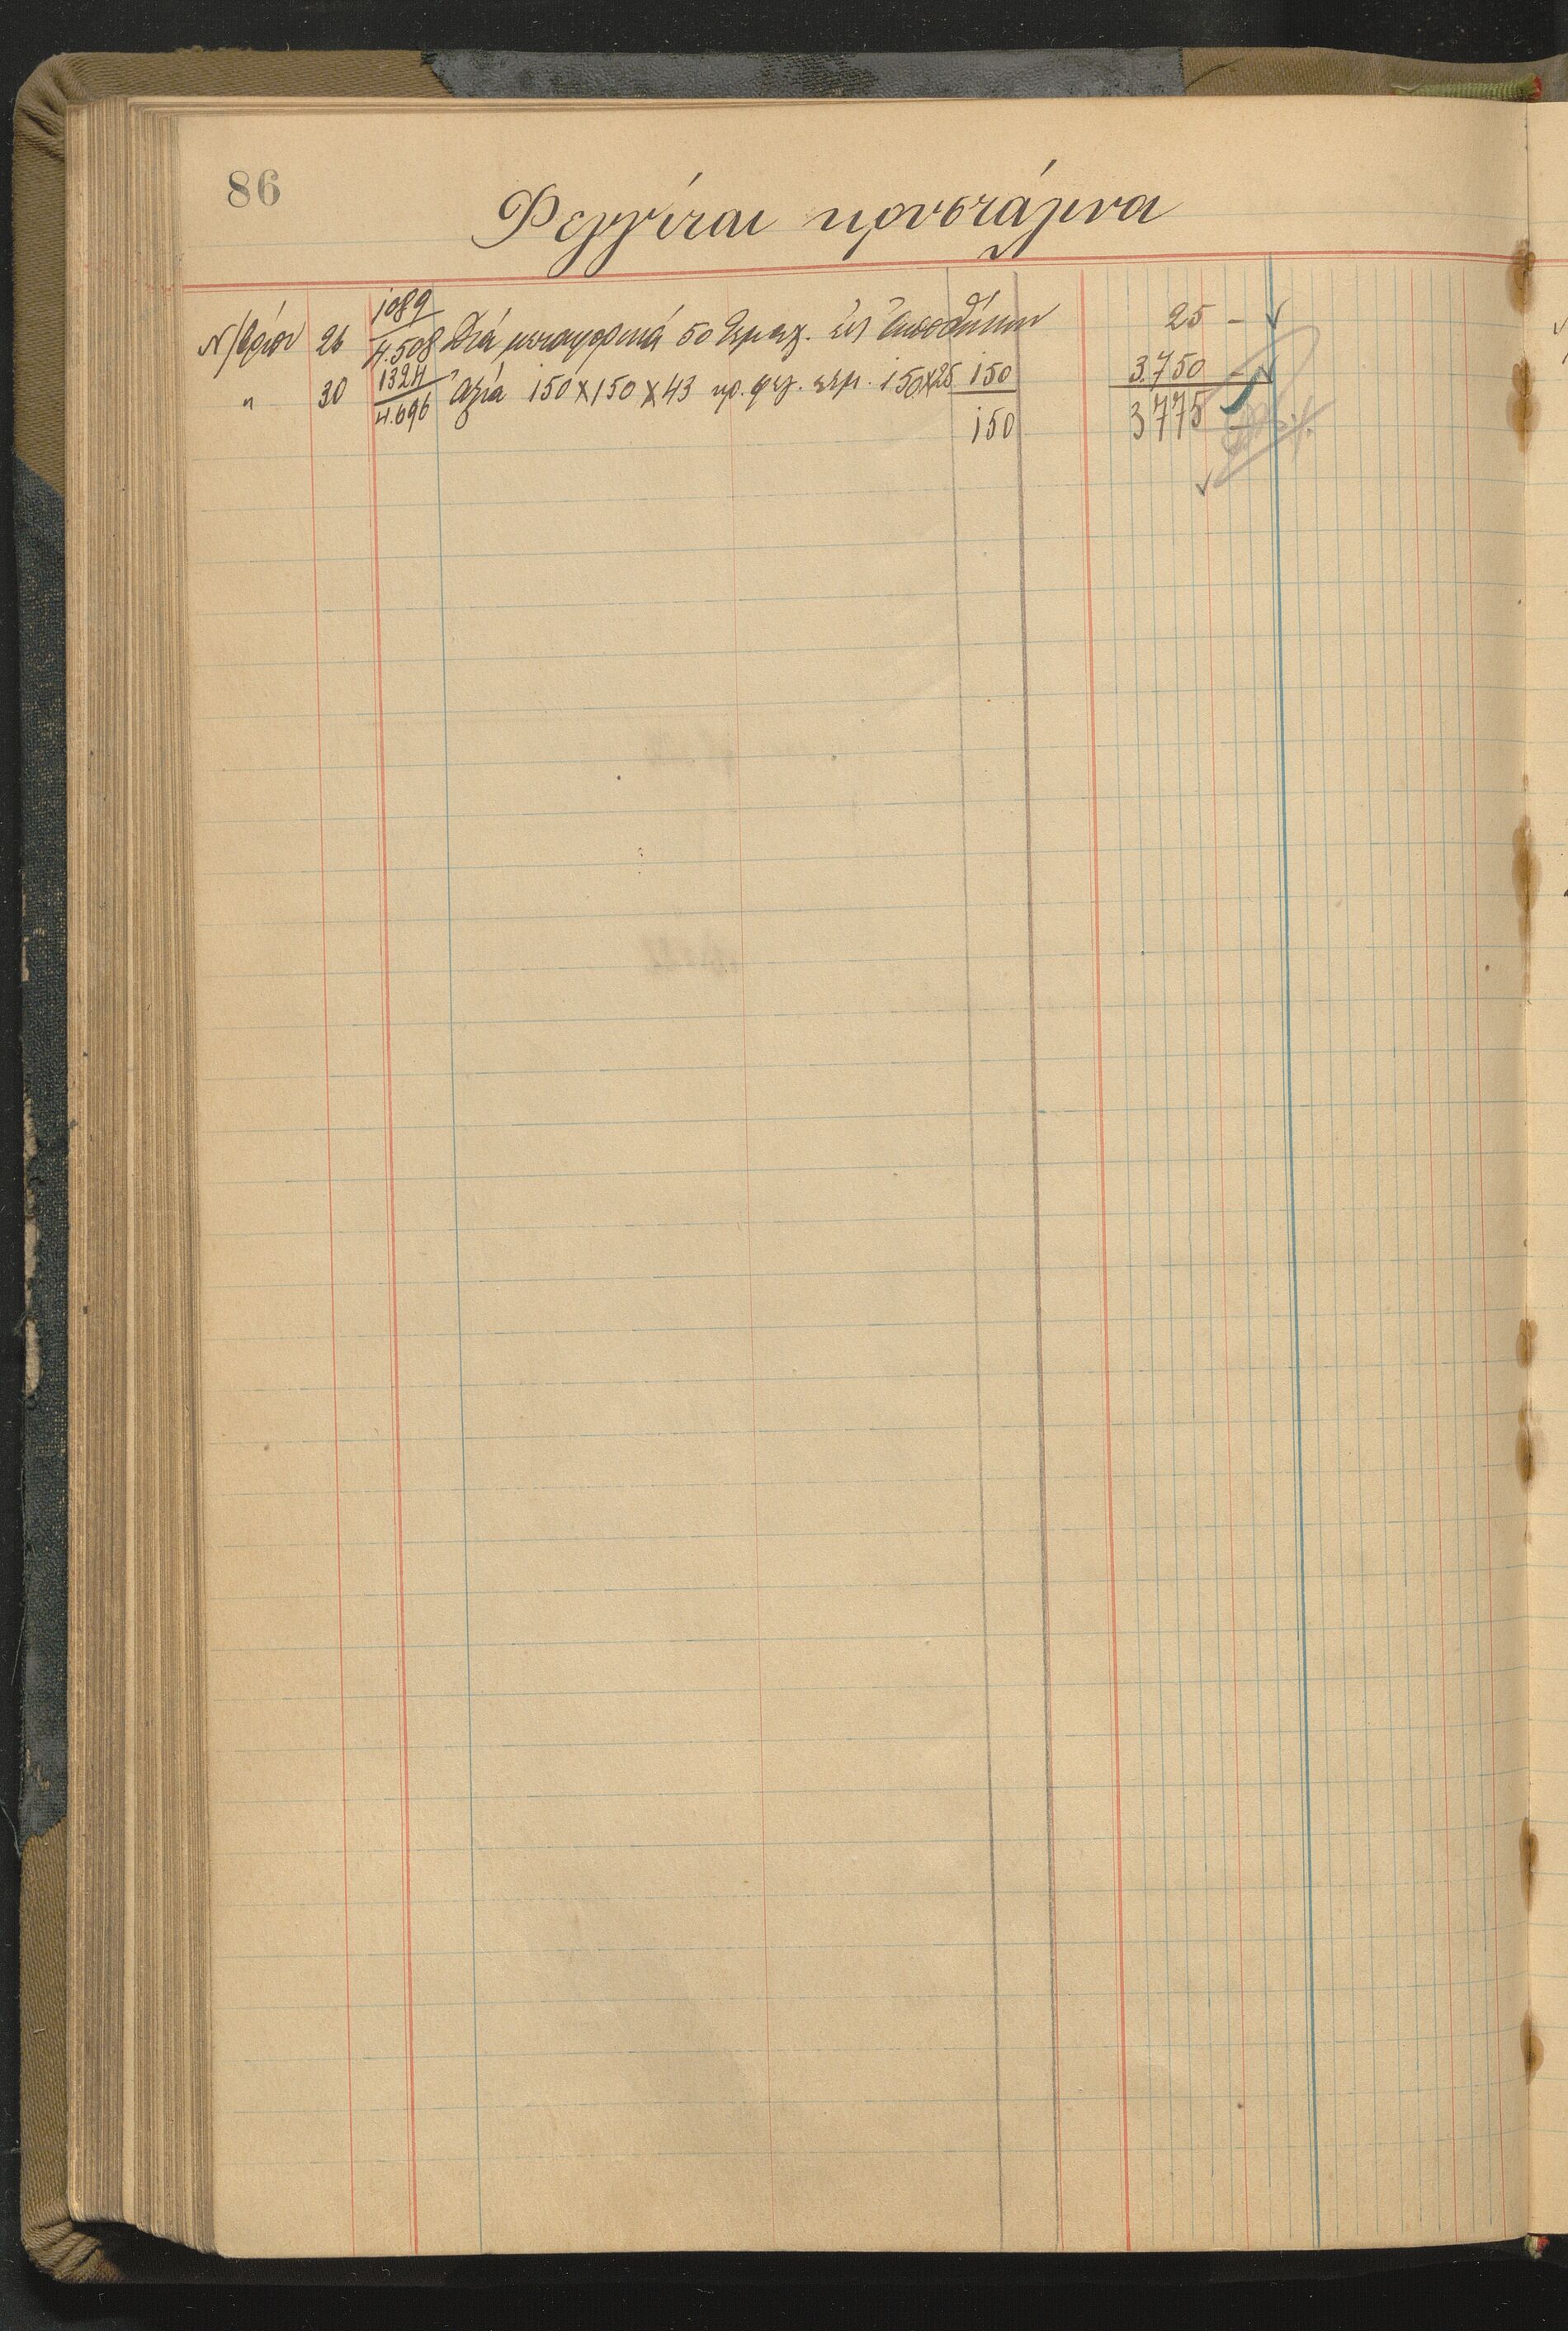 86
Φεγγίται κρουστάγινα
Ν/βρίου 26 1089/4.508 Διά μεταφορικά 50 τεμαχ. εις αποθήκην 25 -
" 30 1324/4.696 Αξία 150 x 150 x 43 κρ. φεγ. τεμ. 150x25 150 3.750 -
150 3775 -